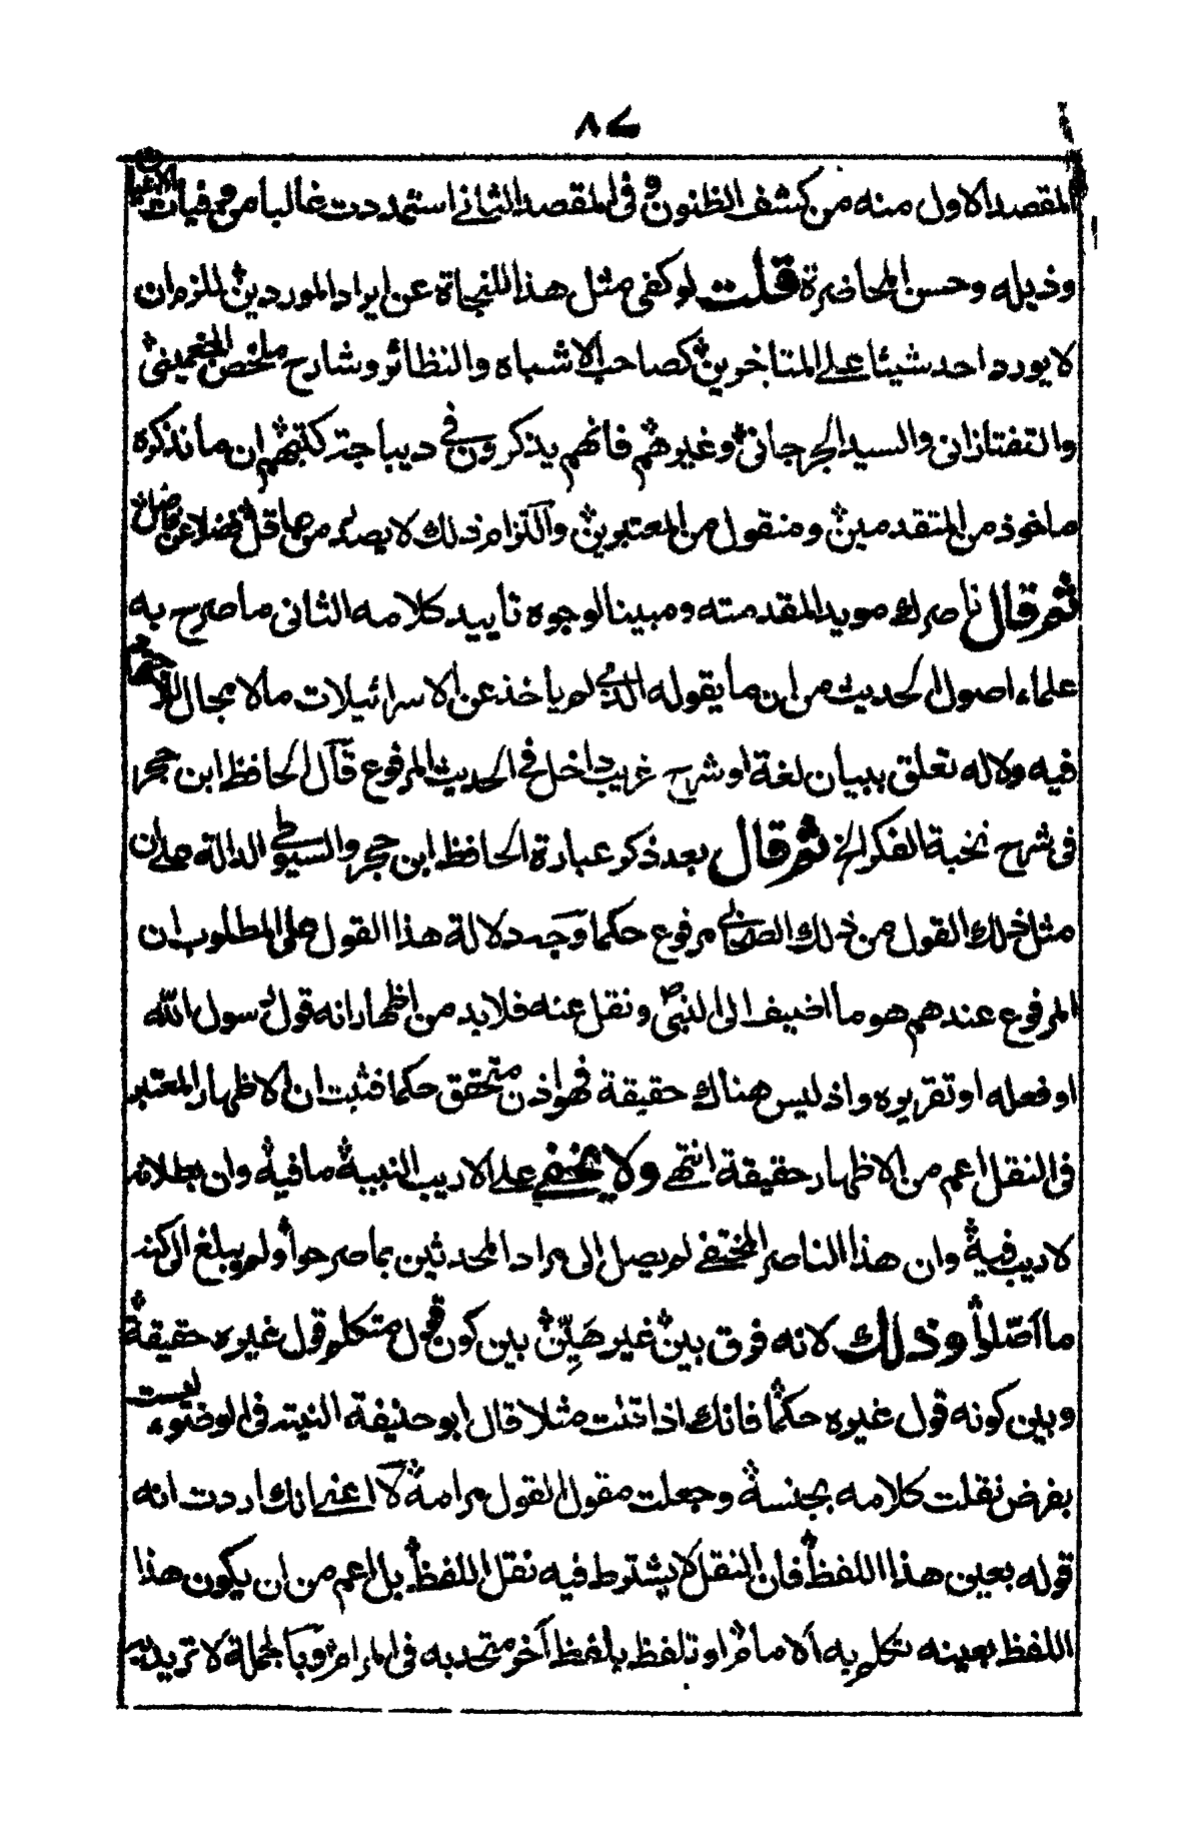 ٨٧
المقصد الاول منه من كشف الظنون وفى المقصد الثانى استمددت غالبا من وفيات الاعيان
وذيله وحسن المحاضرة قلت لو كفى مثل هذا للنجاة عن ايراد الموردين للزم ان
لا يورد احد شيئا على المتاخرين كصاحب الاشباه والنظائر وشارح ملخص الجغمينى
والتفتازانى والسيد الجرجانى وغيرهم فانهم يذكرون فى ديباجة كتبهم ان ما نذكره
ماخوذ من المتقدمين ومنقول من المعتبرين والتزام ذلك لا يصدر من عاقل فضلا عن فاضل
ثم قال ناصرك مويد المقدمته ومبينا لوجوه تاييد كلامه الثانى ما صرح به
علماء اصول الحديث من ان ما يقوله الذى لم ياخذ عن الاسرائيلات ما لا مجال للاجتهاد
فيه ولا له تعلق ببيان لغة او شرح غريب داخل فى الحديث المرفوع قال الحافظ ابن حجر
فى شرح نخبة الفكر الخ ثم قال بعد ذكر عبارة الحافظ ابن حجر والسيوطى الدالة على ان
مثل ذلك القول من ذلك الصحابى مرفوع حكما وجه دلالة هذا القول على المطلوب ان
المرفوع عندهم هو ما اضيف الى النبى ونقل عنه فلا بد من اظهار انه قول رسول الله
او فعله او تقريره واذ ليس هناك حقيقة فهو اذن متحقق حكما فثبت ان الاظهار المعتبر
فى النقل اعم من الاظهار حقيقة انتهى ولا يخفى على الاريب النبيه ما فيه وان بطلانه
لا ريب فيه وان هذا الناصر المختفى لم يصل الى مراد المحدثين بما صرحوا ولم يبلغ الى كنه
ما اصلوا وذلك لانه فرق بين غير هَيِّن بين كون قول متكلم قول غيره حقيقة
وبين كونه قول غيره حكما فانك اذا قلت مثلا قال ابو حنيفة النية فى الوضوء ليست
بفرض نقلت كلامه بجنسه وجعلت مقول القول مرامه لا اعنى انك اردت انه
قوله بعين هذا اللفظ فان النقل لا يشترط فيه نقل اللفظ بل اعم من ان يكون هذا
اللفظ بعينه تكلم به الامام او تلفظ بلفظ آخر متحد به فى المرام وبالجملة لا تريد به